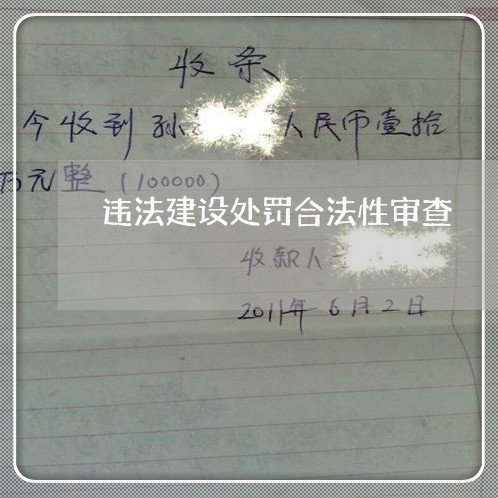 收条
今收到孙 人民币壹拾
万元整(100000)
违法建设处罚合法性审查
收款人
2011年6月2日